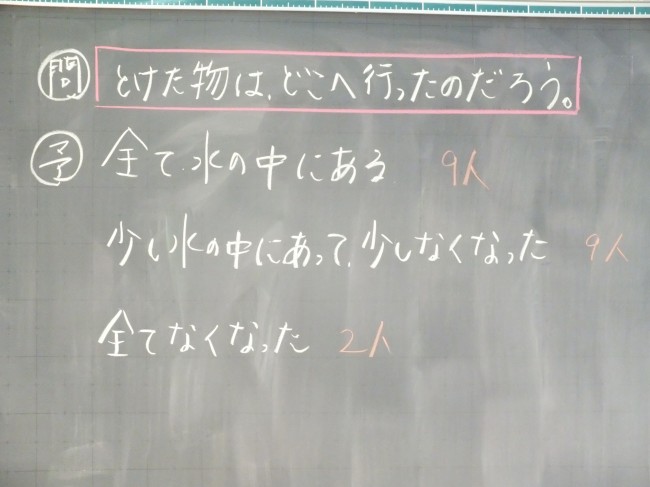 問 とけた物は、どこへ行ったのだろう。
予 全て水の中にある 9人
少し水の中にあって、少しなくなった 9人
全てなくなった 2人